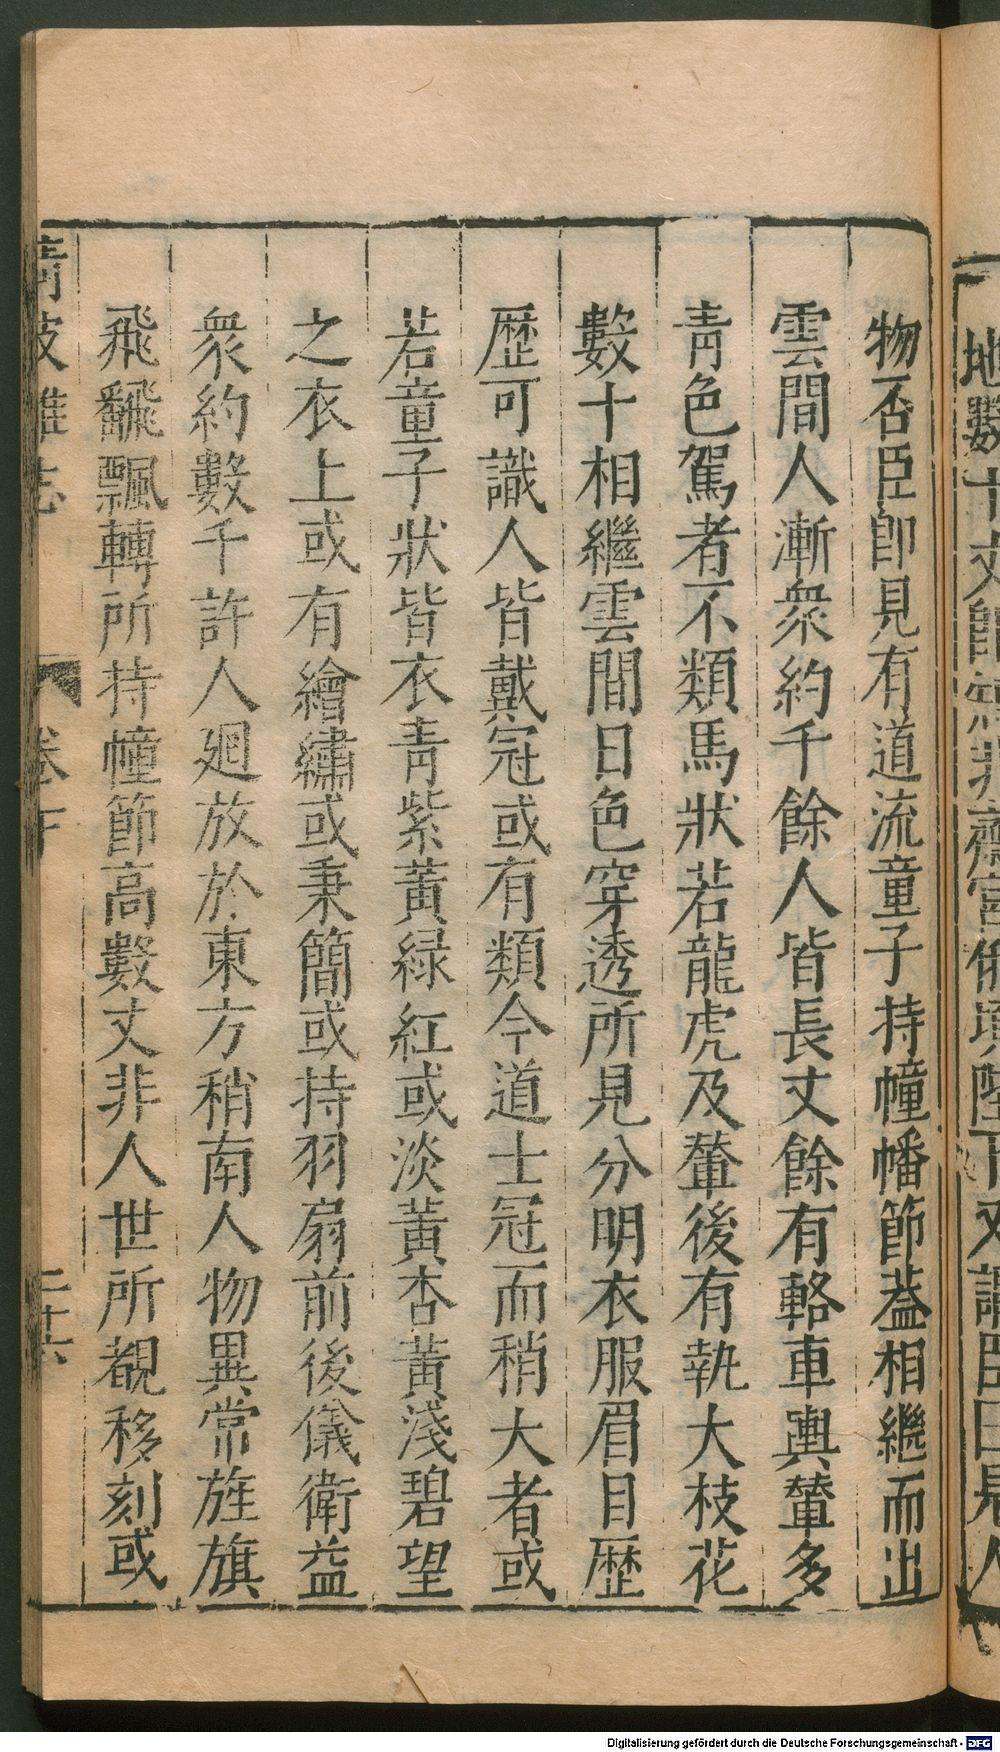 物否臣卽見有道流童子持幢幡節葢相繼而出
雲間人漸衆約千餘人皆長丈餘有輅車輿輦多
靑色駕者不類馬狀若龍虎及輦後有執大枝花
數十相繼雲間日色穿透所見分明衣服眉目歴
歴可識人皆戴冠或有類今道士冠而稍大者或
若童子狀皆衣靑紫黃緑紅或淡黃杏黃淺碧望
之衣上或有繪繡或秉簡或持羽扇前後儀衛益
衆約數千許人廻放於東方稍南人物異常旌旗
飛飜飄轉所持幢節高數丈非人世所覩移刻或
清波雜志 卷下 二十六
Digitalisierung gefördert durch die Deutsche Forschungsgemeinschaft - DFG